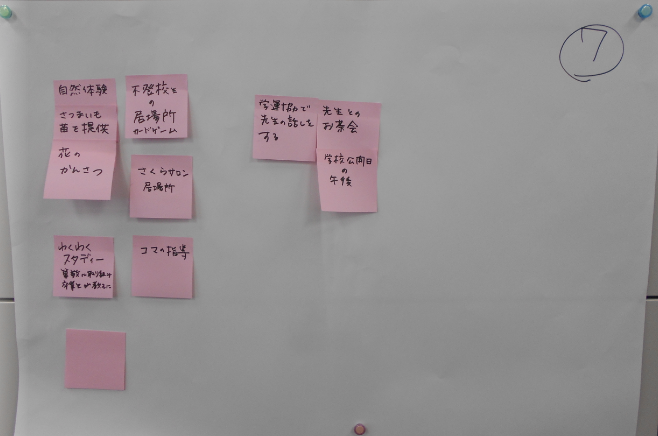 7
自然体験
さつまいも
苗を提供
花の
かんさつ
不登校と
の
居場所
カードゲーム
さくらサロン
居場所
わくわく
スタディー
コマの指導
学運協で
先生の話しを
する
先生との
お茶会
学校公開日
の
午後